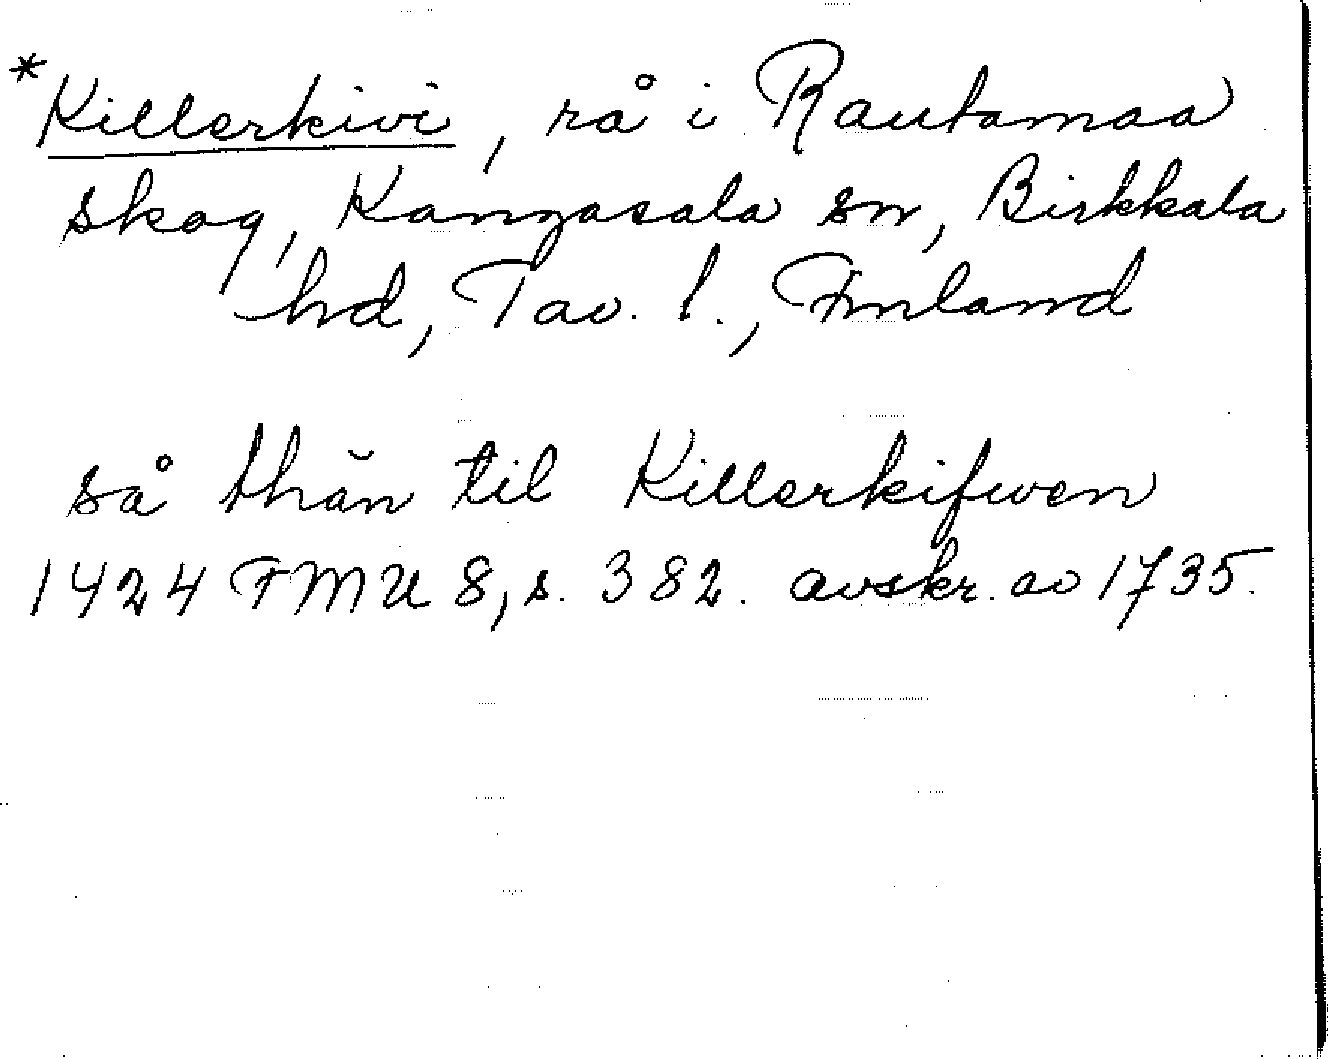 *Killerkivi, rå i Rautamaa
skog, Kangasala sn, Birkkala
hd, Tav. l., Finland
så thăn til Killerkifwen
1424 FMU 8, s. 382. avskr. av 1735.